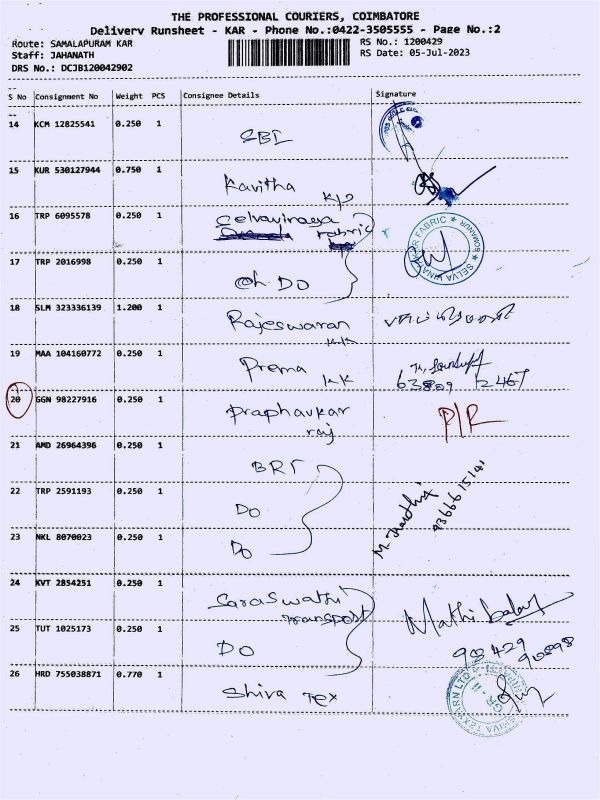 THE PROFESSIONAL COURIERS, COIMBATORE
Delivery Runsheet - KAR - Phone No.:0422-3505555 - Page No.:2
Route: SAMALAPURAM KAR
Staff: JAHANATH
DRS No.: DCJB120042902
RS No.: 1200429
RS Date: 05-Jul-2023
S No Consignment No Weight PCS Consignee Details Signature
14 KCM 12825541 0.250 1 SBI
15 KUR 530127944 0.750 1 Kavitha
K/P
16 TRP 6095578 0.250 1 Selvavinaya
Fabric
SELVA VINAYAKAR FABRIC ★ SOMANUR ★
17 TRP 2016998 0.250 1 DO
18 SLM 323336139 1.200 1 Rajeswaran
KK
19 MAA 104160772 0.250 1 Prema
KK
63809 12467
20 GGN 98227916 0.250 1 Praphavkar
raj
P/R
21 AMD 26964396 0.250 1 BRT
22 TRP 2591193 0.250 1 DO
23 NKL 8070023 0.250 1 DO
24 KVT 2854251 0.250 1 Saraswathi
Transport
25 TUT 1025173 0.250 1 DO
90429
90898
26 HRD 755038871 0.770 1 Shiva Tex